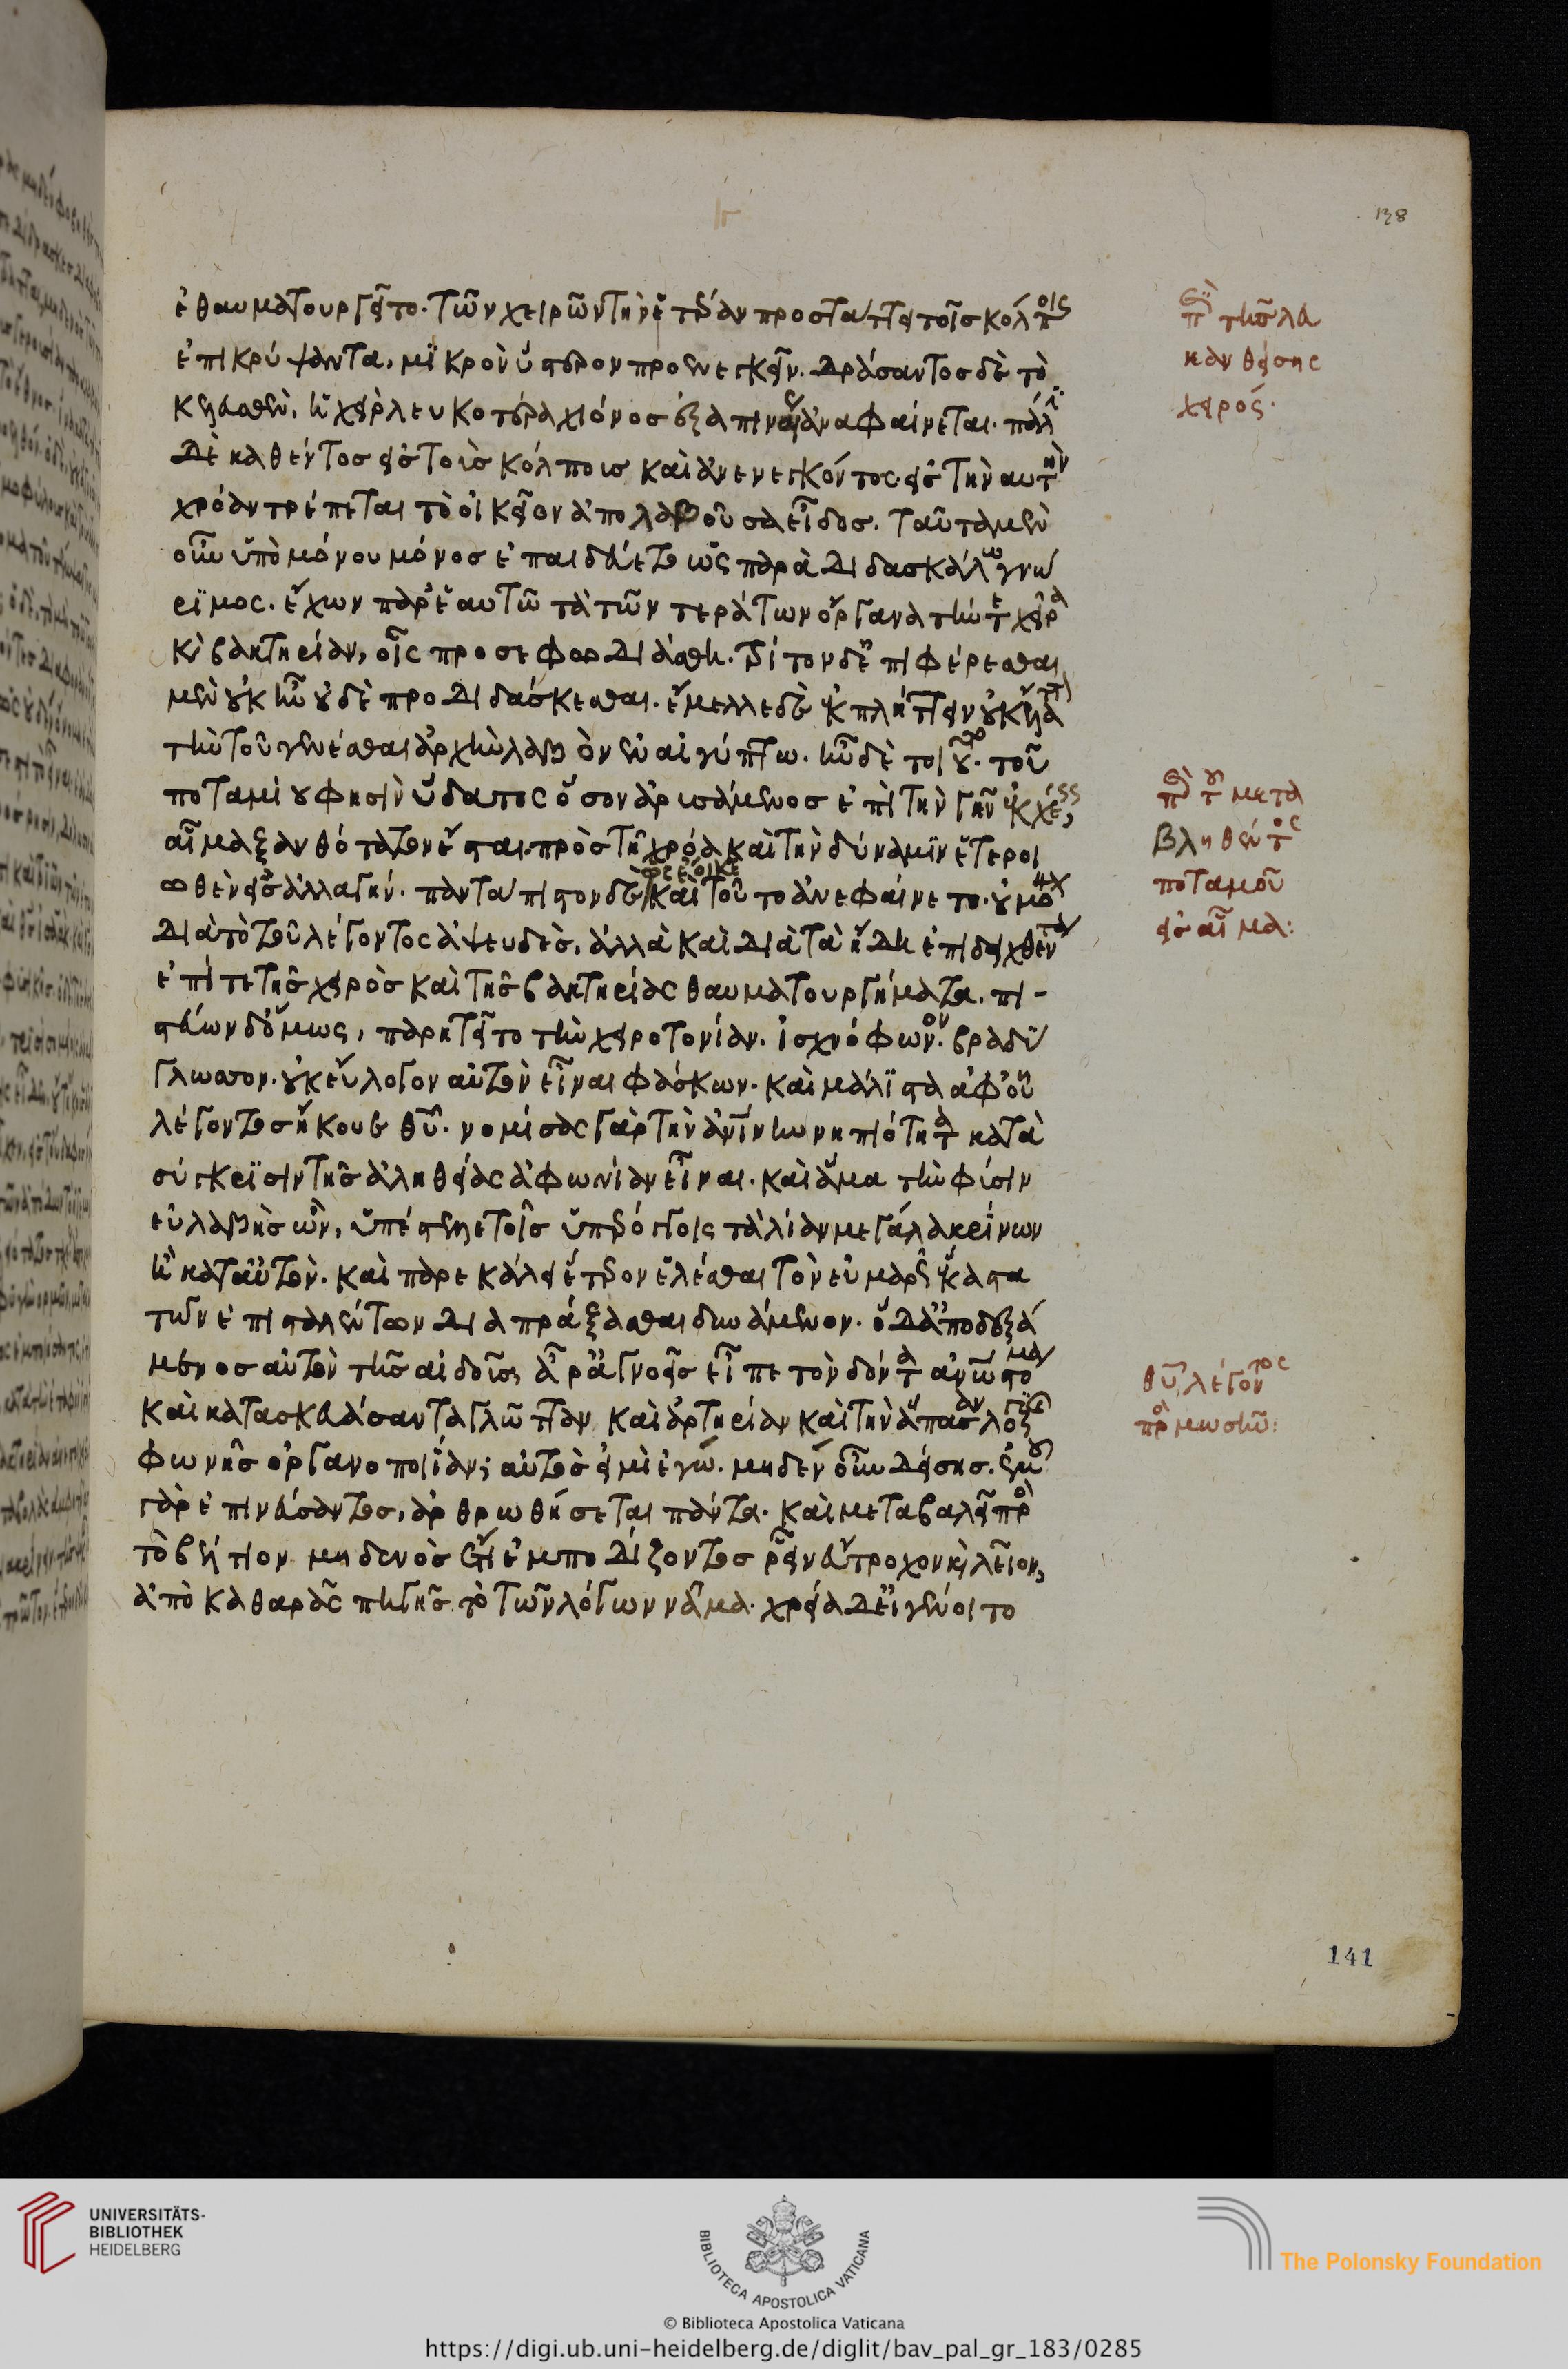 ἐθαυματουργεῖτο· τῶν χειρῶν τὴν ἑτέραν προστάττει τοῖς κόλποις
ἐπικρύψαντα, μικρὸν ὕστερον προενεγκεῖν. δράσαντος δὲ τὸ
κελευσθὲν, ἡ χεὶρ λευκοτέρα χιόνος ἐξαπιναίως ἀναφαίνεται. πάλιν
δὲ καθέντος εἰς τοὺς κόλποις καὶ ἀνενεγκόντος εἰς τὴν αυτὴν
χρόαν τρέπεται τὸ οἰκεῖον ἀπολαβοῦσα εἶδος. ταῦτα μὲν
οὖν ὑπὸ μόνου μόνος ἐπαιδεύετο ὡς παρὰ διδασκάλω γνώ
ριμος. ἔχων παρ' ἑαυτῶ τὰ τῶν τεράτων ὄργανα τήν τε χεῖρα
καὶ βακτηρίαν, οἷς προσεφωδιάσθη. τρίτον δ' ἐπιφέρεσθαι
μὲν οὐκ ἦν οὐδὲ προδιδάσκεσθαι. ἔμελλε δὲ ἐκπλήττειν οὐκ ἔλαττ
τὴν τοῦ γενέσθαι ἀρχὴν λαβὸν ἐν αἰγύπτω. ἦν δὲ τοιοῦτο. τοῦ
ποταμίου φησὶν ὕδατος ὅσον ἀρυσάμενος ἐπὶ τὴν γῆν ἐκχέης,
αἷμα ξανθότατον ἔσται. πρὸς τῆ χρόα καὶ τὴν δύναμιν ἑτεροι
ωθὲν εἰς ἀλλαγήν. πάντα πιστὸν δὲ ὡς ἔοικε καὶ τοῦτο ἀνεφαίνετο. οὐ μόνον
διὰ τὸ τοῦ λέγοντος ἀψευδὲς, ἀλλὰ καὶ διὰ τὰ ἤδη ἐπιδειχθέντα
ἐπί τε τῆς χειρὸς καὶ τῆς βακτηρίας θαυματουργήματα. πι-
στεύων δ' ὅμως, παρητεῖτο τὴν χειροτονίαν. ἰσχνόφωνον. βραδύ
γλωσσον. οὐκ εὔλογον αὐτὸν εἶναι φάσκων. καὶ μάλιστα ἀφ' οὗ
λέγοντος ἤκουε θυ. νομίσας γὰρ τὴν ἀνίνων νηπιότητα κατὰ
σύγκρισιν τῆς ἀληθείας ἀφωνίαν εἶναι. καὶ ἅμα τὴν φύσιν
εὐλαβὴς ὢν, ὑπέστελλετο τοῖς ὑπερόγκοις τὰ λίαν μεγάλα κρίνων
ἢ κατ' αὐτὸν. καὶ παρεκάλει ἕτερον ἑλέσθαι τὸν εὐμαρῶς ἕκαστα
τῶν ἐπισταλέντων διαπράξασθαι δυνάμενον. ὁ δ' ἀποδεξά
μενος αὐτὸν τῆς αἰδοῦς, ἆρ' ἀγνοεῖς εἶπε τὸν δόντα ἀνῶ στόμα
καὶ κατασκευάσαντα γλῶτταν καὶ ἀρτηρίαν καὶ τὴν ἅπασαν λογικῆς
φωνῆς ὀργανοποιΐαν; αὐτός εἰμὶ ἐγώ. μηδὲν οὖν δείσης. ἐμοῦ
γὰρ ἐπινεύσαντος, ἀρθρωθήσεται πάντα. καὶ μεταβαλεῖ πρὸς
τὸ βέλτιον μηδενὸς ἔτι ἐμποδίζοντος ῥεῖν εὔτροχον καὶ λεῖον,
ἀπὸ καθαρᾶς πηγῆς τὸ τῶν λόγων νᾶμα. χρεία δ' εἰ γένοιτο
περὶ τῆς λευ
κανθείσης
χειρός.
περὶ τοῦ μετα
βληθέντος
ποταμοῦ
εἰς αἷμα:
θυ λέγοντος
πρὸς μωσῆν:
138
141
UNIVERSITÄTS-
BIBLIOTHEK
HEIDELBERG
BIBLIOTECA APOSTOLICA VATICANA
© Biblioteca Apostolica Vaticana
The Polonsky Foundation
https://digi.ub.uni-heidelberg.de/diglit/bav_pal_gr_183/0285